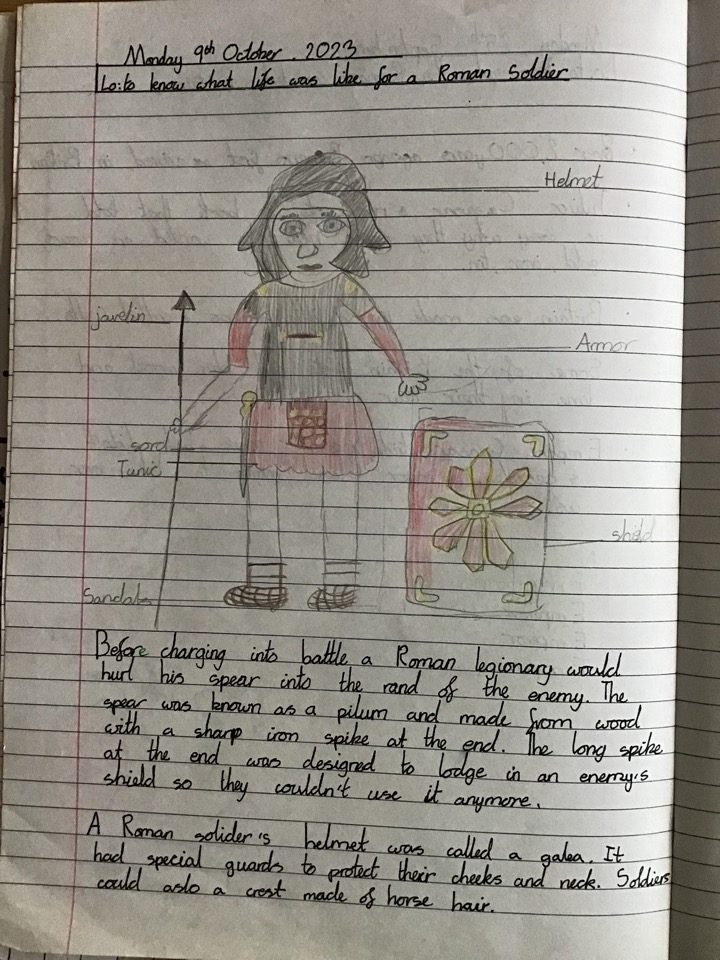 Monday 9th October. 2023
Lo: to know what life was like for a Roman Soldier
Helmet
javelin
Armor
sord
Tunic
shield
Sandals
Before charging into battle a Roman legionary would
hurl his spear into the rand of the enemy. The
spear was known as a pilum and made from wood
with a sharp iron spike at the end. The long spike
at the end was designed to lodge in an enemy's
shield so they couldn't use it anymore.
A Roman solider's helmet was called a galea. It
had special guards to protect their cheeks and neck. Soldiers
could aslo a crest made of horse hair.